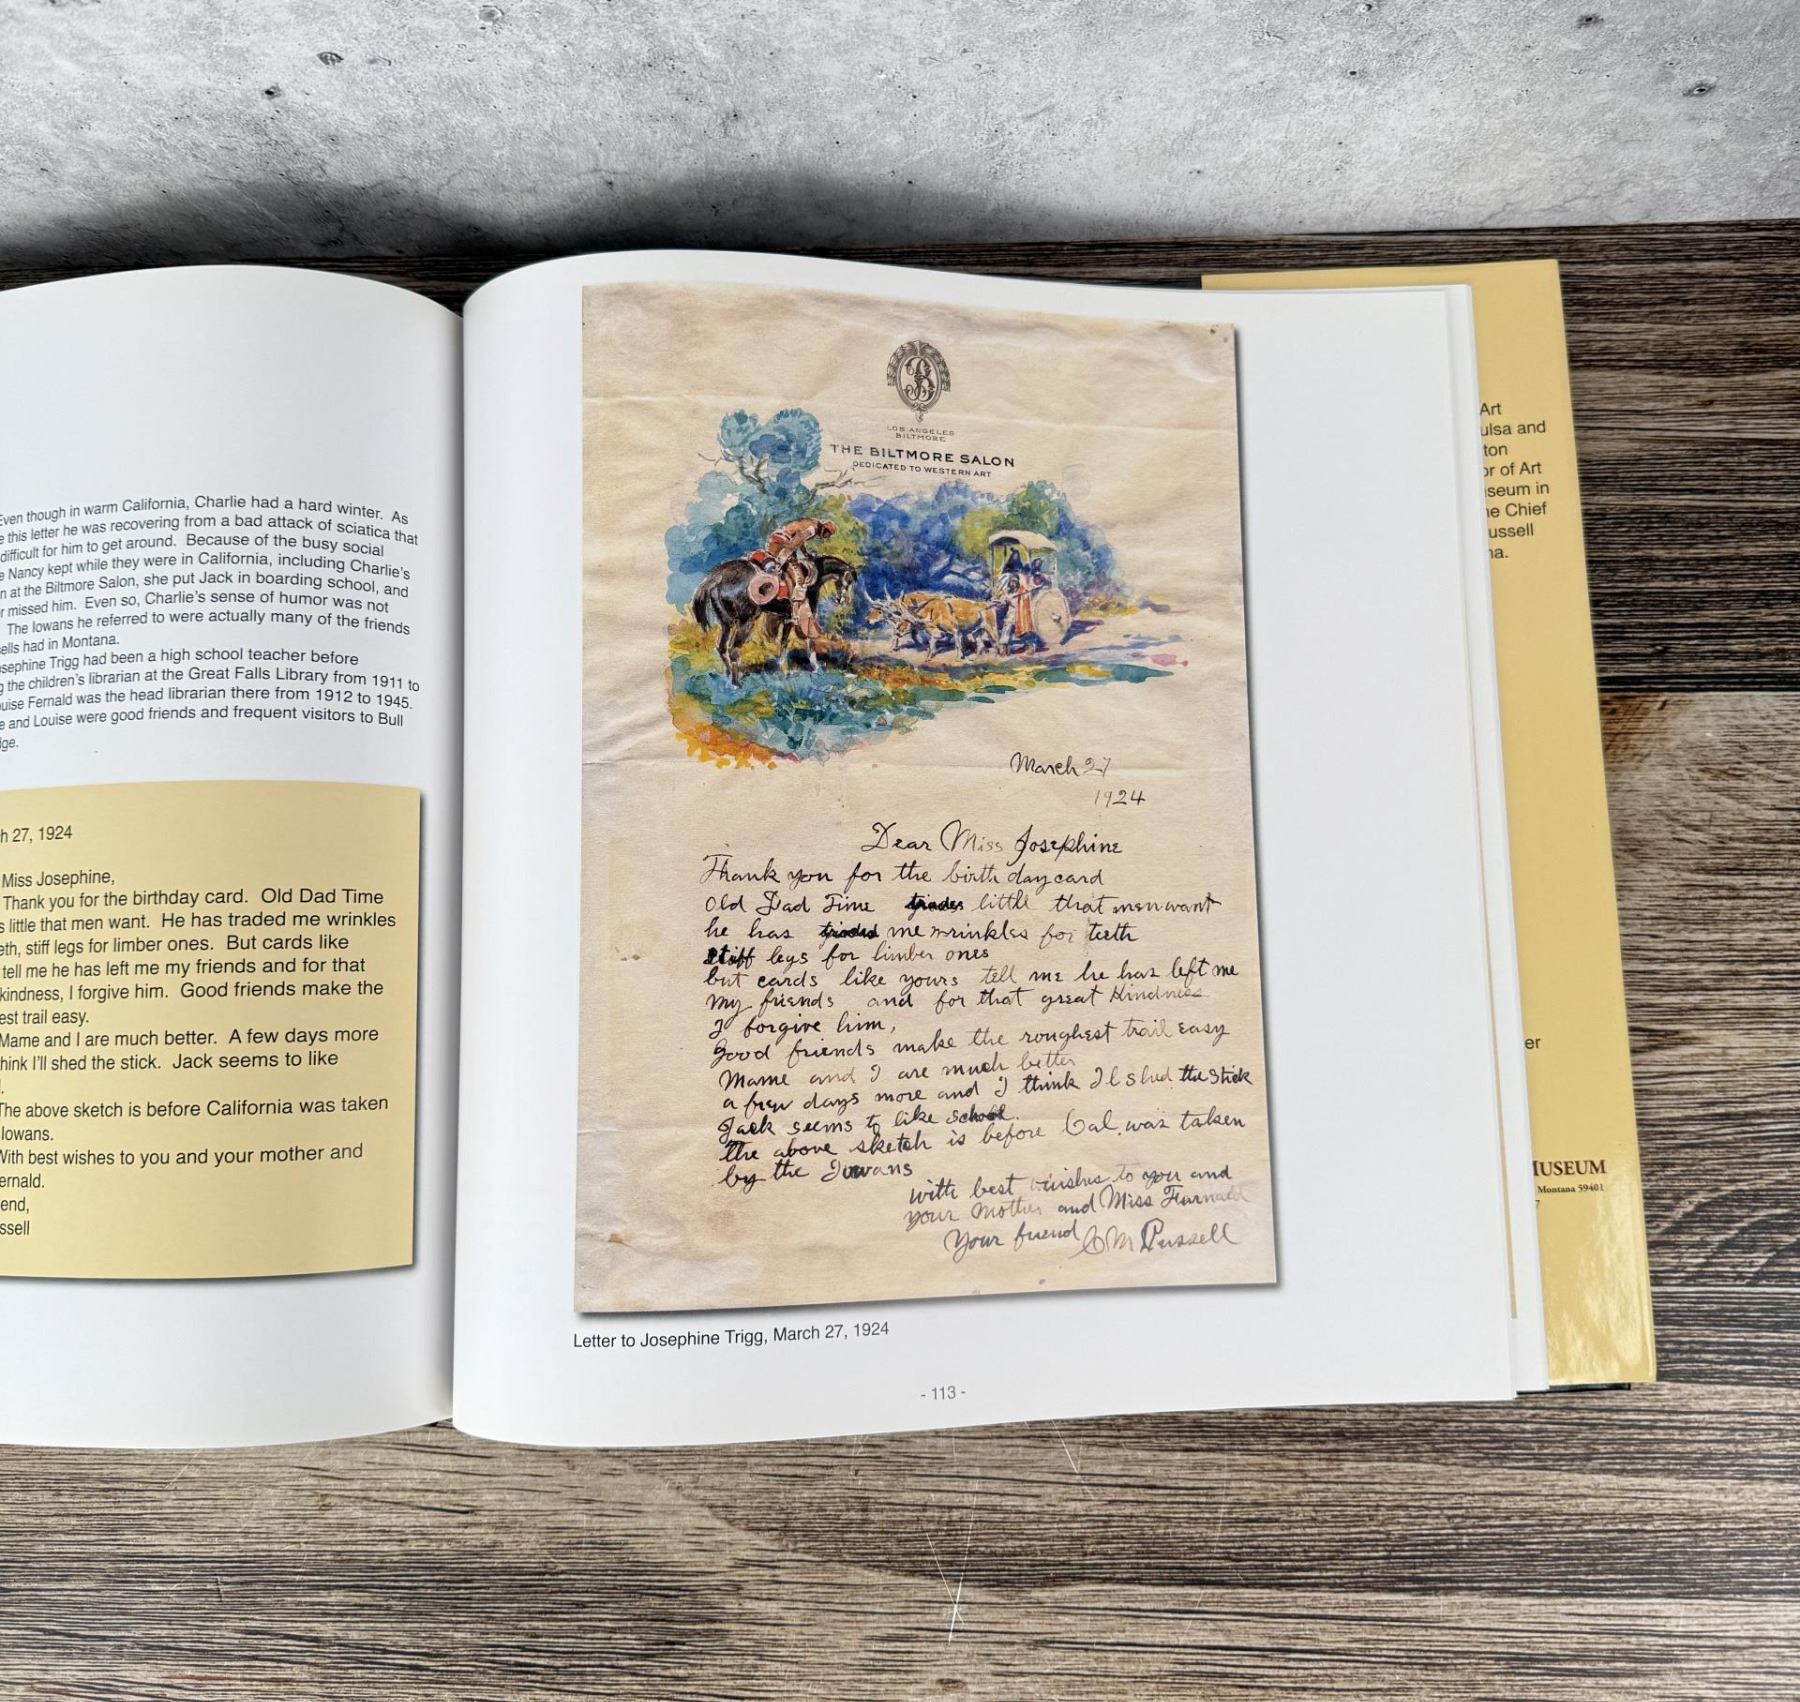 Even though in warm California, Charlie had a hard winter. As
this letter he was recovering from a bad attack of sciatica that
difficult for him to get around. Because of the busy social
Nancy kept while they were in California, including Charlie's
at the Biltmore Salon, she put Jack in boarding school, and
missed him. Even so, Charlie's sense of humor was not
The Iowans he referred to were actually many of the friends
had in Montana.
Trigg had been a high school teacher before
the children's librarian at the Great Falls Library from 1911 to
Fernald was the head librarian there from 1912 to 1945.
and Louise were good friends and frequent visitors to Bull
27, 1924
Miss Josephine,
Thank you for the birthday card. Old Dad Time
little that men want. He has traded me wrinkles
stiff legs for limber ones. But cards like
tell me he has left me my friends and for that
kindness, I forgive him. Good friends make the
trail easy.
Mame and I are much better. A few days more
think I'll shed the stick. Jack seems to like
The above sketch is before California was taken
Iowans.
With best wishes to you and your mother and
LOS ANGELES
BILTMORE
THE BILTMORE SALON
DEDICATED TO WESTERN ART
March 27
1924
Dear Miss Josephine
Thank you for the birth day card
Old Dad Time trades little that men want
he has traded me wrinkles for teeth
stiff legs for limber ones
but cards like yours tell me he has left me
my friends and for that great kindness
I forgive him,
good friends make the roughest trail easy
Mame and I are much better
a few days more and I think Il shed the stick
Jack seems to like school.
the above sketch is before Cal. was taken
by the Iowans
with best wishes to you and
your mother and Miss Furnald
Your friend CM Russell
Letter to Josephine Trigg, March 27, 1924
- 113 -
Art
and
of Art
in
Chief
MUSEUM
Montana 59401